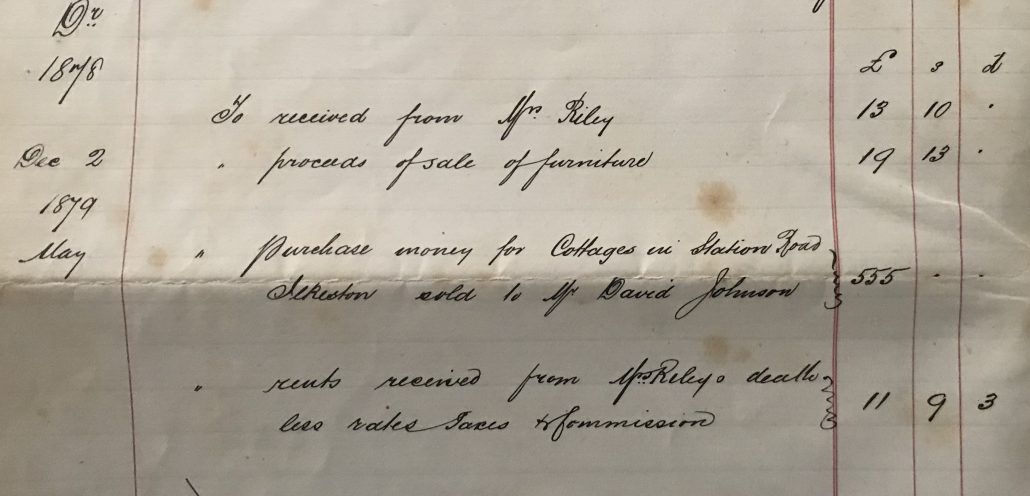 Dr
1878 £ s d
To received from Mrs. Riley 13 10 .
Dec 2 " proceeds of sale of furniture 19 13 .
1879
May " Purchase money for Cottages in Station Road
Ilkeston sold to Mr David Johnson 555 . .
" rents received from Mrs Rileys death
less rates Taxes & Commission 11 9 3